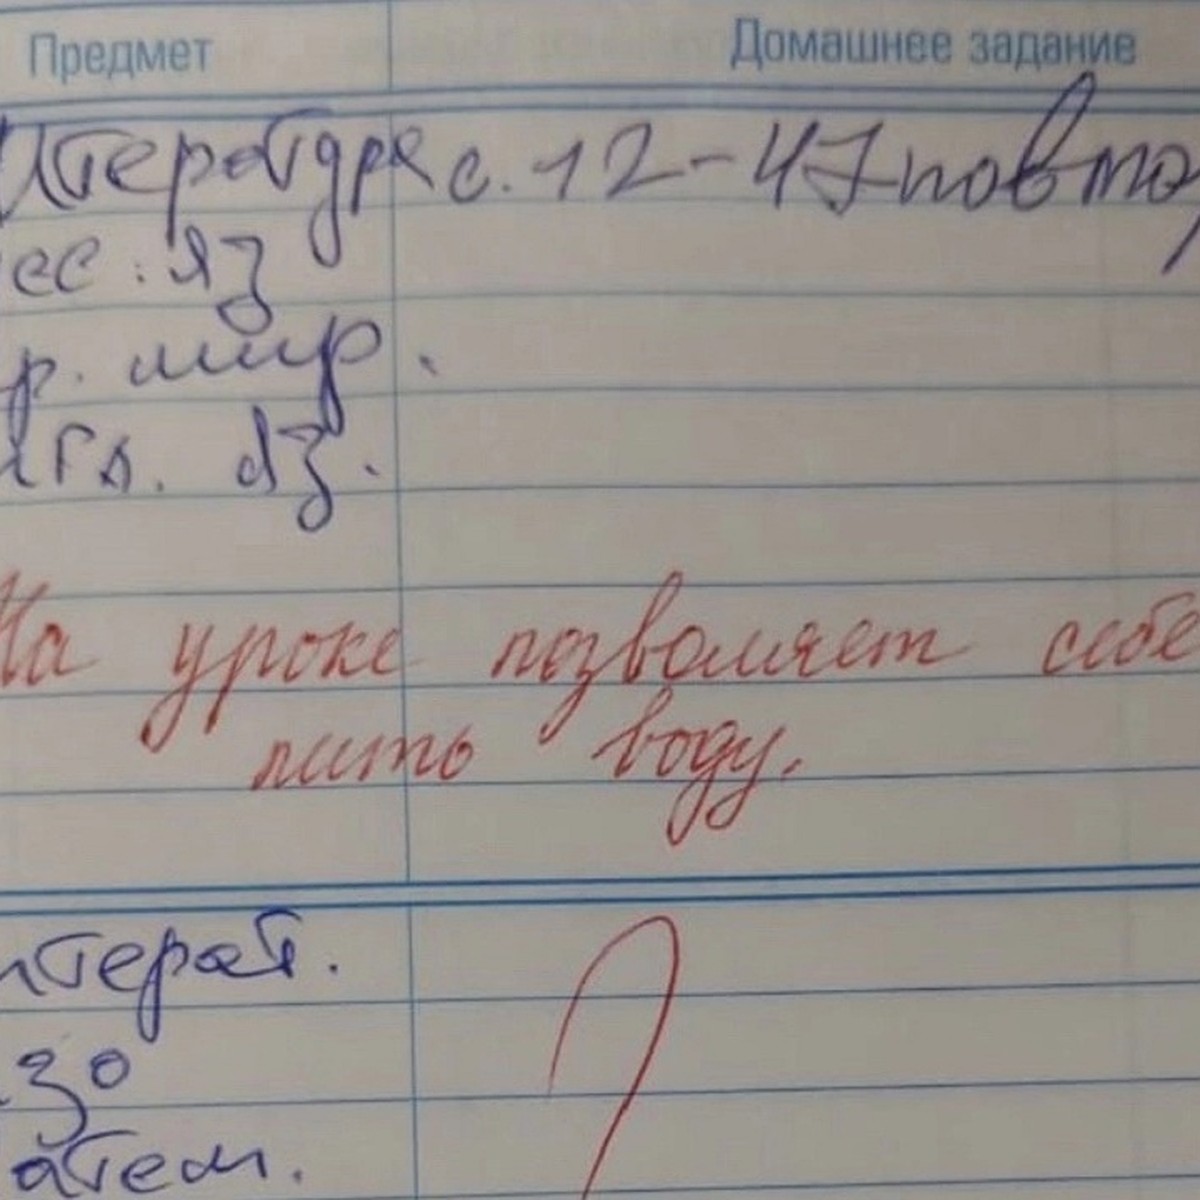 Предмет Домашнее задание
итература с. 12-47 повтор
сс. яз
р. мир.
нгл. яз.
На уроке позволяет себе
пить воду.
итерат.
изо
атем.